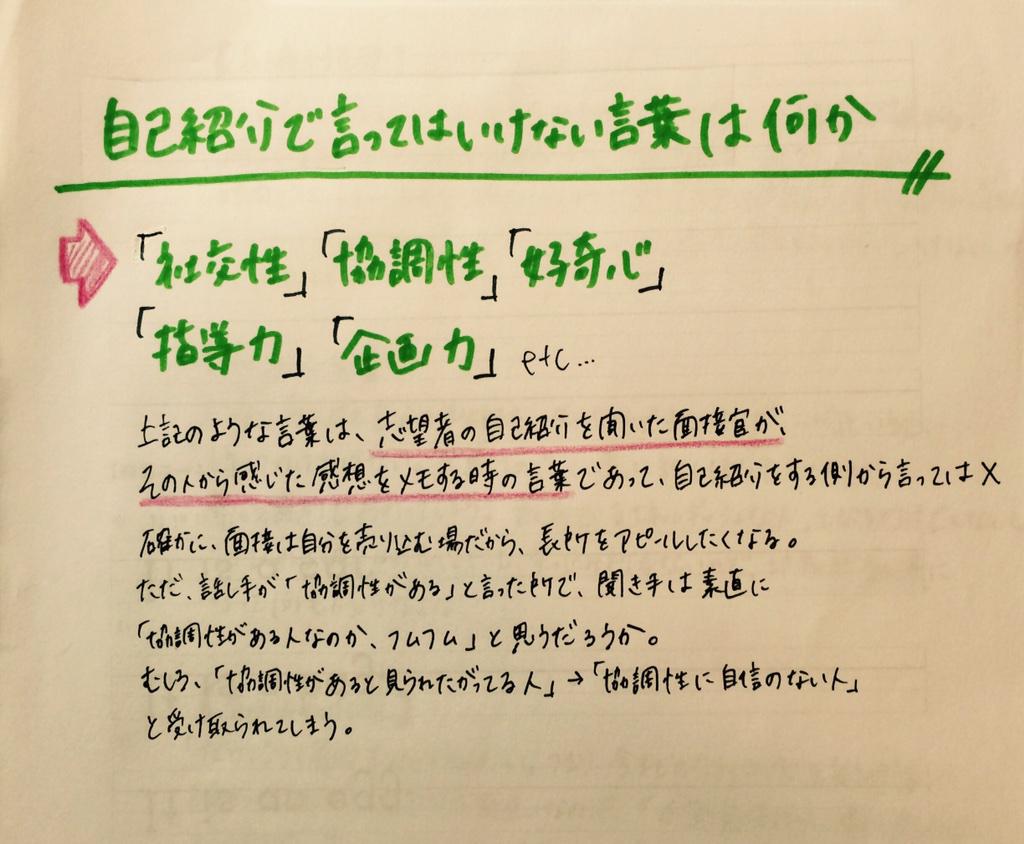 自己紹介で言ってはいけない言葉は何か
「社交性」「協調性」「好奇心」
「指導力」「企画力」etc...
上記のような言葉は、志望者の自己紹介を聞いた面接官が、
その人から感じた感想をメモする時の言葉であって、自己紹介をする側から言っては×
確かに、面接は自分を売り込む場だから、長所をアピールしたくなる。
ただ、話し手が「協調性がある」と言った所で、聞き手は素直に
「協調性がある人なのか、フムフム」と思うだろうか。
むしろ、「協調性があると見られたがってる人」→「協調性に自信のない人」
と受け取られてしまう。